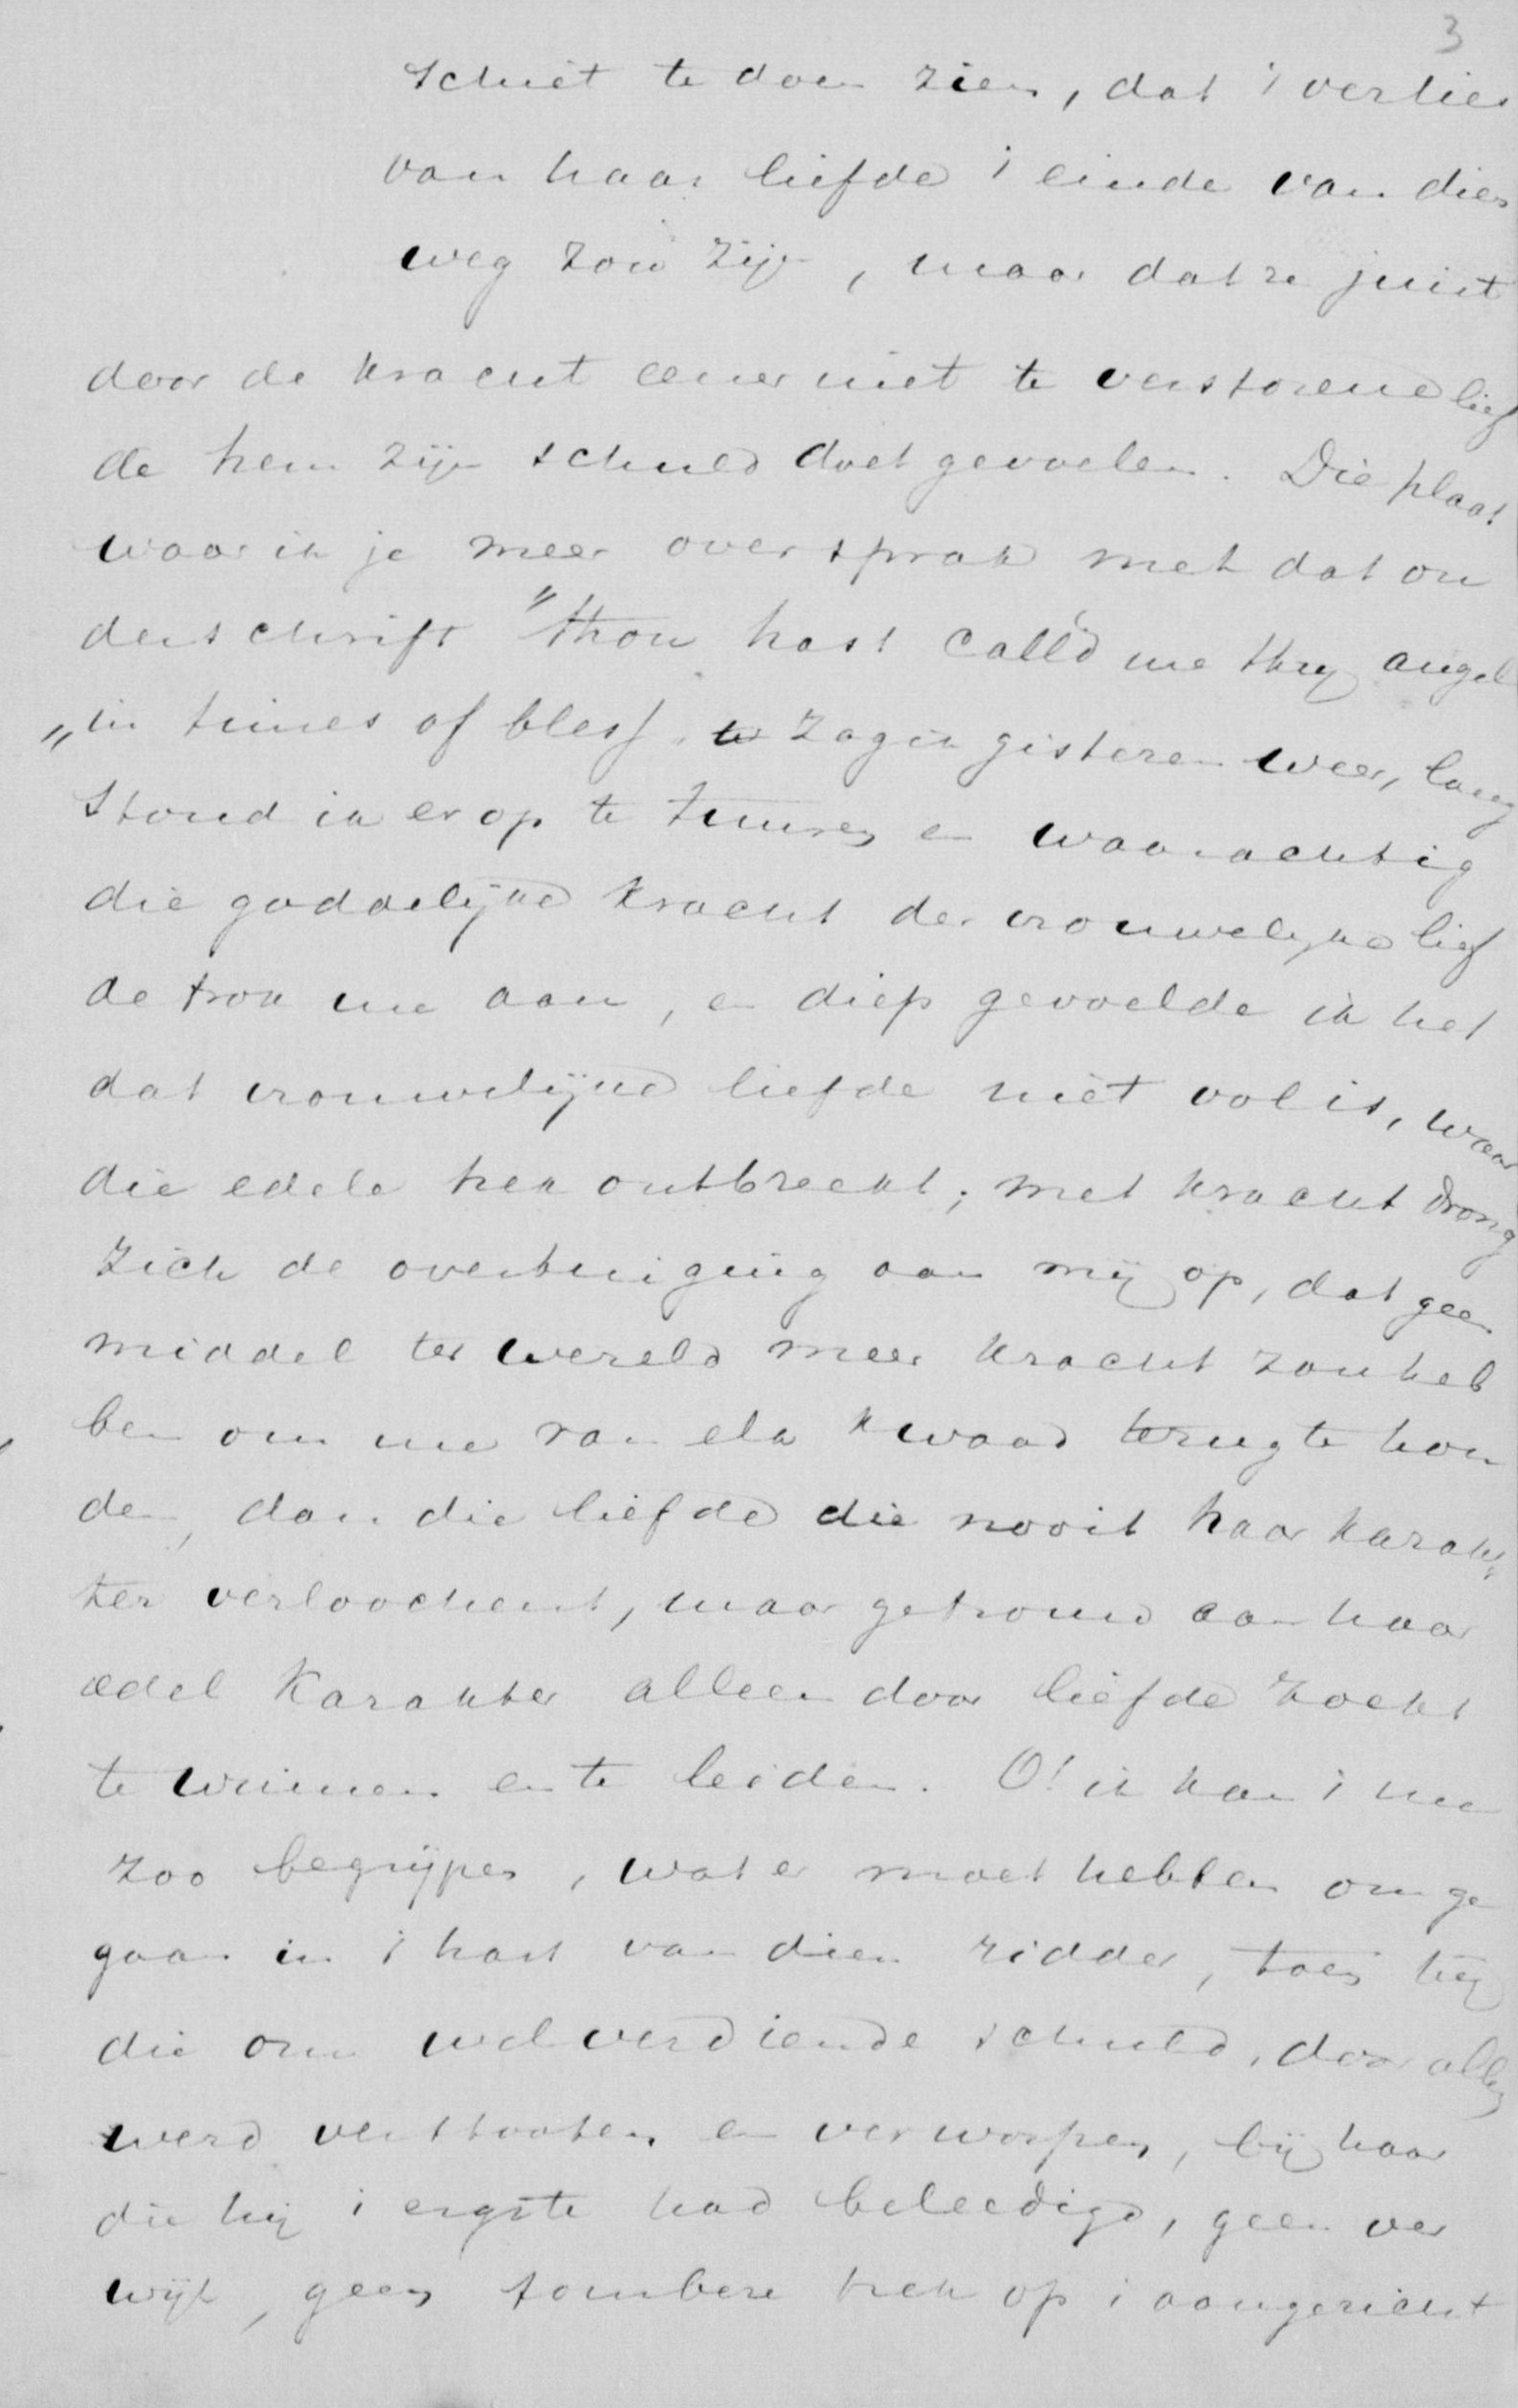 3
schiet te doen zien, dat 't verlies
van haar liefde 't einde van dien
weg zou zijn, maar dat ze juist
door de kracht eener niet te verstoren lief
de hem zijn schuld doet gevoelen. Die plaat
waar ik je meer over sprak met dat on
derschrift "thou hast call'd me thy angel
"in times of bless, zag ik gisteren weer, lang
stond ik erop te turen en waarachtig
die goddelijke kracht der vrouwelijke lief
de trok me aan, en diep gevoelde ik het
dat vrouwelijke liefde niet vol is, waar
die edele trek ontbreekt; met kracht drong
zich de overtuiging aan mij op, dat geen
middel ter wereld meer kracht zou heb
ben om me van elk kwaad terug te hou
den, dan die liefde die nooit haar karak=
ter verloochent, maar getrouw aan haar
edel karakter alleen door liefde zoekt
te winnen en te leiden. O! ik kan 't me
zoo begrijpen, wat er moet hebben omge
gaan in 't hart van dien ridder, toen hij
die om welverdiende schuld, door allen
werd verstooten en verworpen, bij haar
die hij 't ergste had beleedigd, geen ver
wijt, geen sombere trek op 't aangezicht